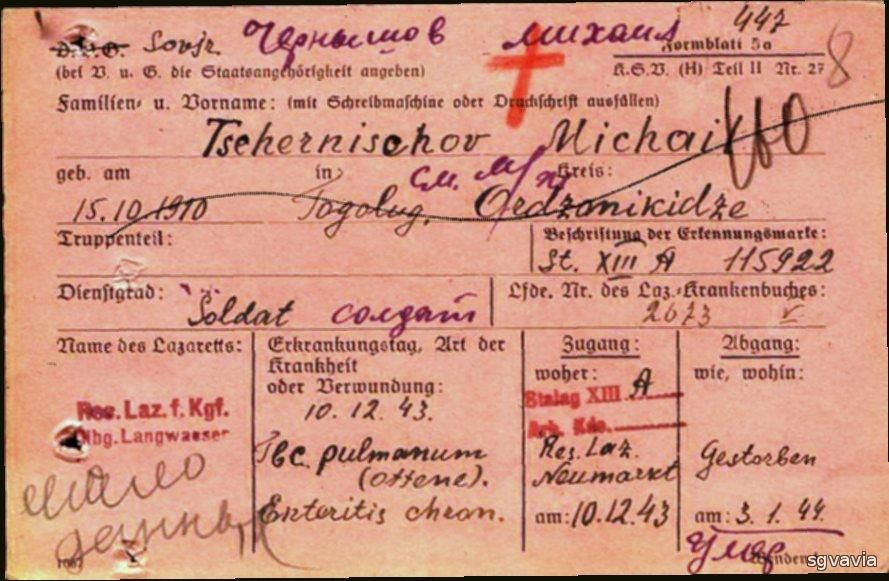 D.V.G. Sovjr. Чернышов михаил 447
(bei V. u. G. die Staatsangehörigkeit angeben)
Formblatt 5a
K.S.V. (H) Teil II Nr. 27 8
Familien- u. Vorname: (mit Schreibmaschine oder Druckschrift ausfüllen)
Tschernischov Michail
geb. am in Kreis:
15.10.1910 Ordzonikidze
Truppenteil: Beschriftung der Erkennungsmarke:
St. XIII A 115922
Dienstgrad: Lfde. Nr. des Laz.-Krankenbuches:
Soldat солдат 2673
Name des Lazaretts:
Res. Laz. f. Kgf.
Nbg. Langwasser
мало
данных
Erkrankungstag, Art der
Krankheit
oder Verwundung:
10.12.43.
Tbc. pulmanum
(offene).
Enteritis chron.
Zugang:
woher:
Stalag XIII A
Arb. Kdo.
Res. Laz.
Neumarkt
am: 10.12.43
Abgang:
wie, wohin:
Gestorben
am: 3.1.44.
умер
Wenden!
sgvavia